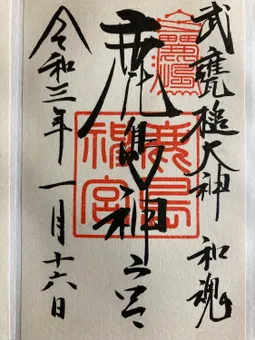 武甕槌大神 和魂
鹿島神宮
鹿島
神宮
令和三年 一月十六日